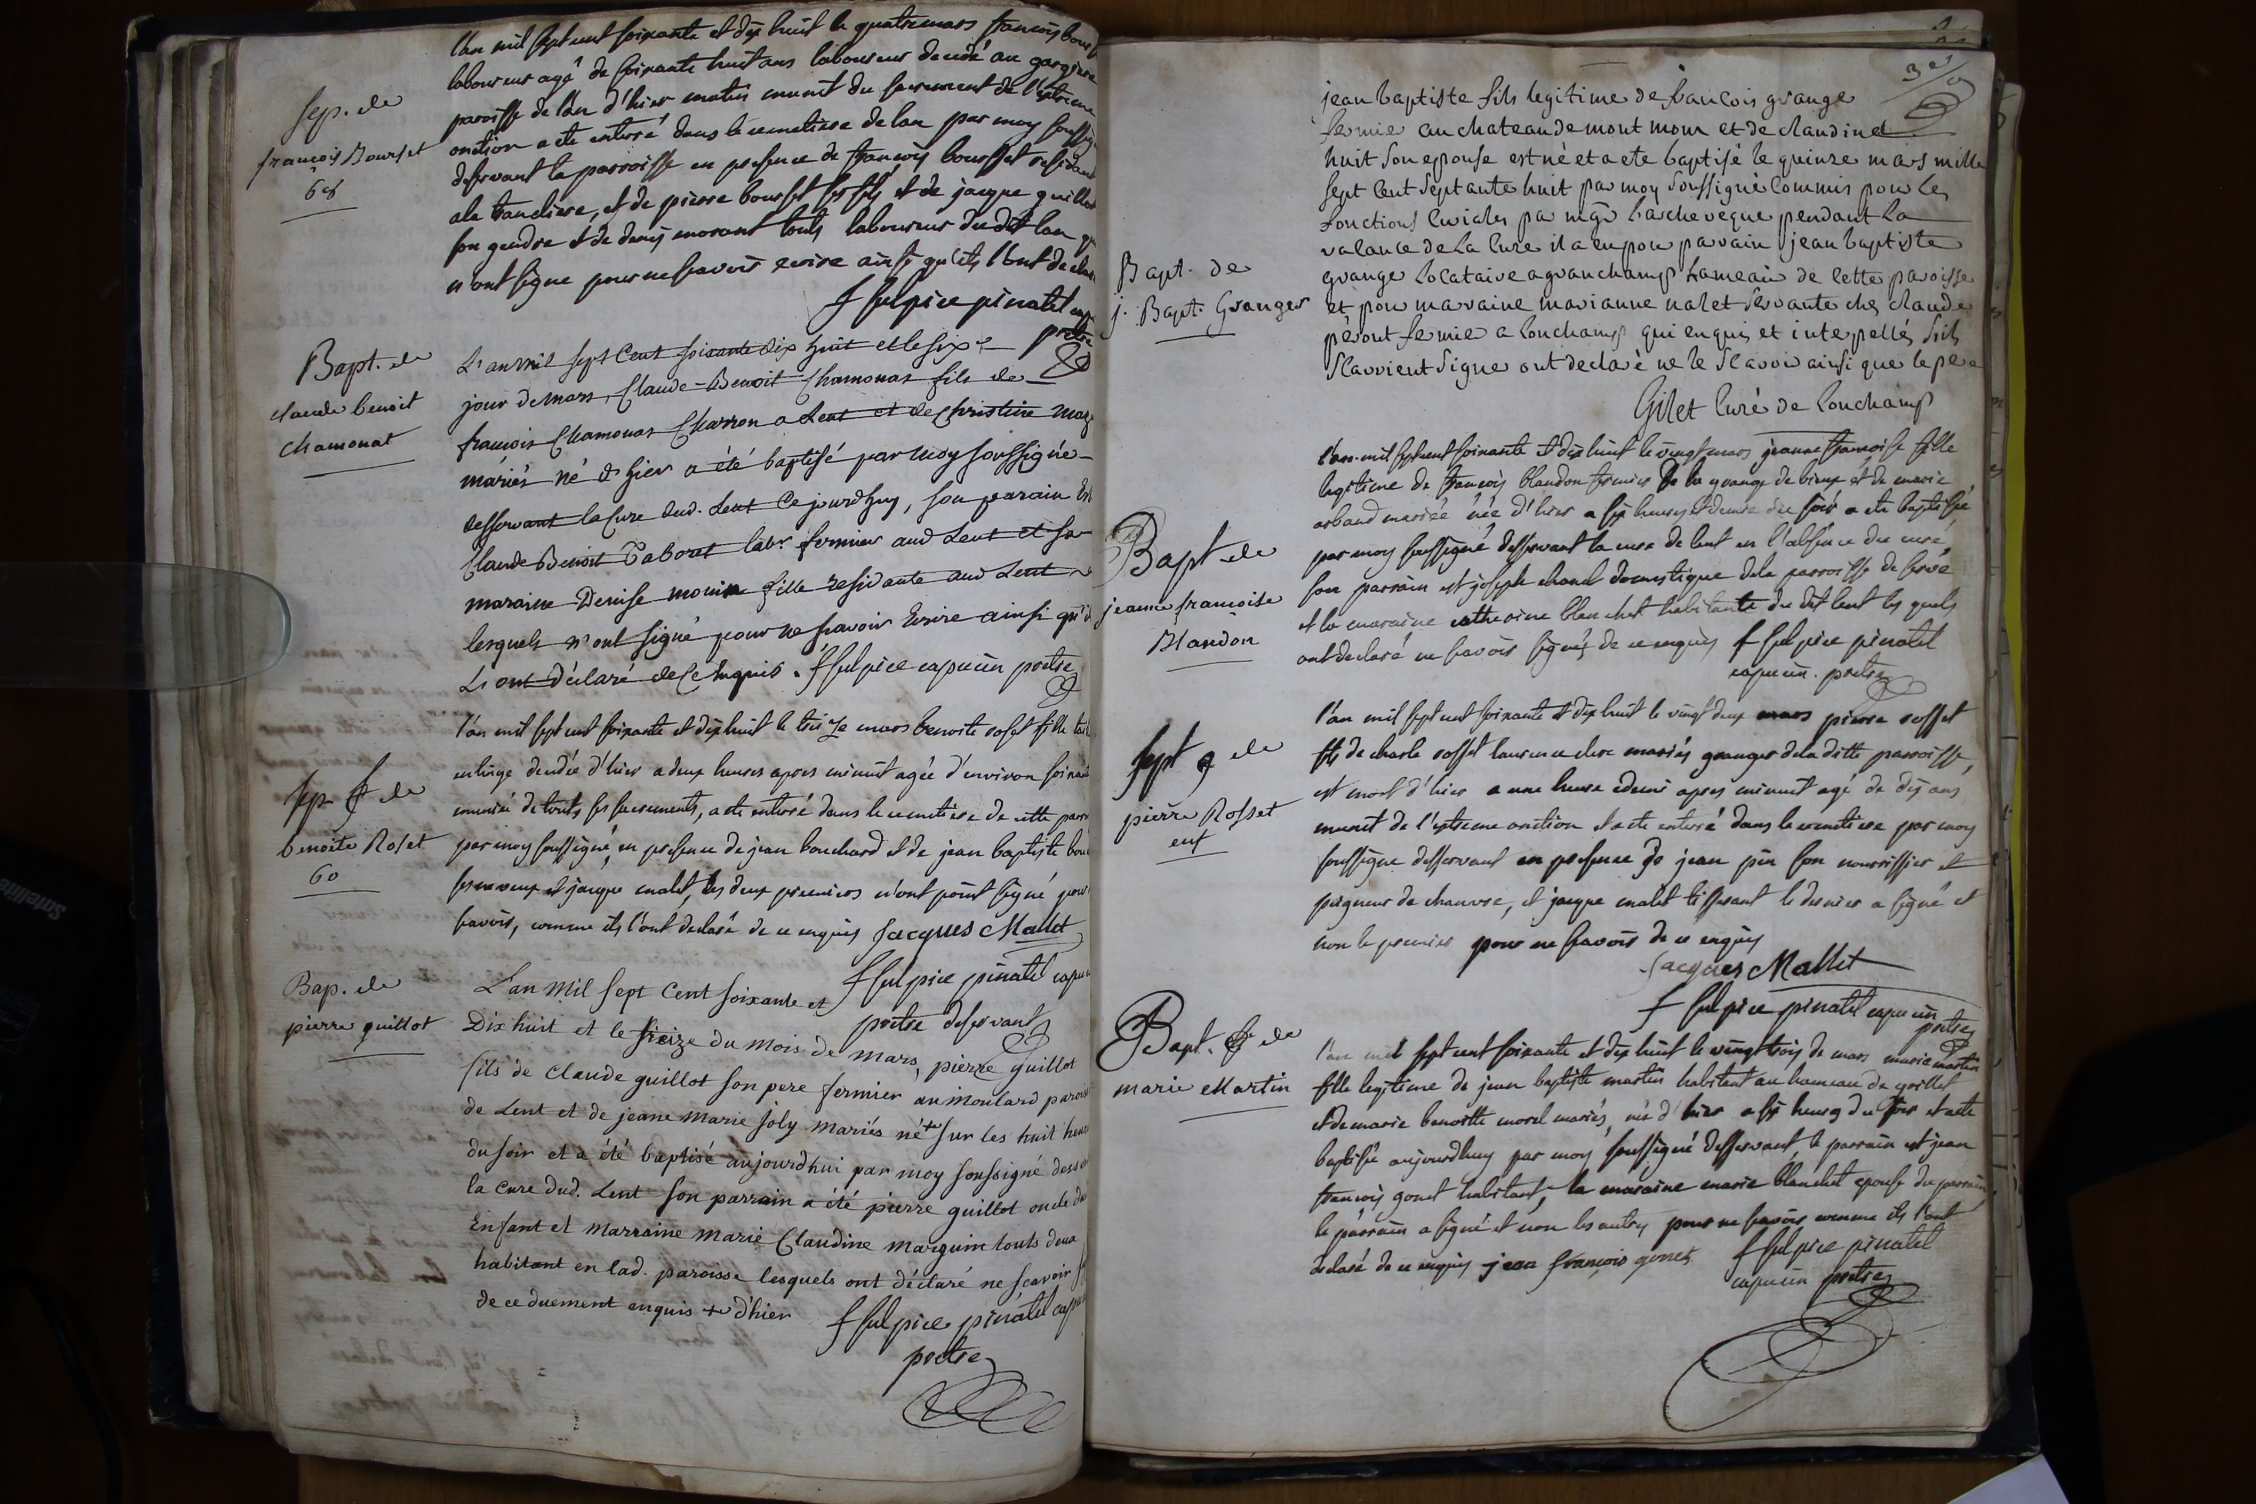 l'an mil sept cent soixante et dix huit le quatre mars francois
laboureur agé de soixante huit ans laboureur decedé au
paroisse de d'hier matin munit du sacrement de l'extreme
onction a ete enterré dans le cemetiere de lan par moy
deservant la parroisse en presence de francois boursset
ala et de pierre boursset ses fils et de jacque guillot
son gendre et de denis morant touts laboureurs du dit lan
n'ont signe pour ne scavoir ecrire ainsi qu'ils l'ont
f sulpice pinatel
pretre
sep. de
francois Bourset
68
Bapt. de
claude benoit
chamonat
L'an mil sept Cent soixante dix huit et le six e
jour de mars, Claude-Benoit Chamonat fils de
francois Chamonat Charron a Lent et de Christine
mariés né d hier a été baptisé par moy soussigné
desservant la Cure dud. Lent Ce jourd'huy, son parain
Claude Benoit Taboret lab.r fermier aud Lent et sa
maraine Denise fille residante aud Lent
lesquels n'ont signé pour ne scavoir Ecrire ainsi
L'ont déclaré de Ce Enquis. f sulpice capucin pretre
sep de
benoite Roset
60
l'an mil sept cent soixante et dix huit le treize mars benoite roset fille
d'hier a deux heures apres minuit agée d'environ
munie de touts ses sacrements, a ete enterré dans le cemetiere de cette
par moy soussigné, en presence de jean bouchard et de jean baptiste
ses neveux et jacque malet, les deux premiers n'ont point signé pour
scavoir, comme ils l'ont declaré de ce enquis Jacques Mallet
f sulpice pinatel
pretre deservant
Bap. de
pierre guillot
L'an mil sept cent soixante et
Dix huit et le seize du mois de mars, pierre guillot
fils de claude guillot son pere fermier au moulard
de Lent et de jeane marie joly mariés né + sur les huit
du soir et a été baptisé aujourd'hui par moy soussigné
la cure dud. Lent son parrain a été pierre guillot oncle
Enfant et marraine marie Claudine marguin touts deux
habitant en lad. paroisse lesquels ont déclaré ne scavoir
de ce duement enquis + d'hier f sulpice pinatel
pretre
jean baptiste fils legitime de francois grange
fermie au chateau de mont mour et de claudine
huit son epouse est né et a ete baptisé le quinze mars mille
sept cent septante huit par moy soussigné Commis pour les
fonctions par mgr larcheveque pendant la
vacance de la Cure il a eu pour parain jean baptiste
grange locataire a granchamp hameau de cette paroisse
et pour maraine marianne nalet servante chez claude
peront fermie a lonchamp qui enquis et interpellés sils
scavoient signe ont declaré ne le scavoir ainsi que le pere
Gilet Curé de lonchamp
Bapt. de
j. Bapt. Granger
Bapt de
jeanne francoise
Blandon
l'an mil sept cent soixante et dix huit le vingt mars jeanne francoise fille
legitime de francois blandon fermier de la grange de bieux et de marie
arband mariée née d'hier a six heures et demie du soir a ete baptisée
par moy soussigné desservant la cure de lent en l'absence du curé
son parrain est joseph chanel domestique dela parroisse de servé
et la maraine catherine blanchet habitante du dit lent les quels
ont declaré ne scavoir signer de ce enquis f sulpice pinatel
capucin. pretre
sept de
pierre Rosset
enf
l'an mil sept cent soixante et dix huit le vingt deux mars pierre rosset
fils de charle rosset laurence clerc mariés granger dela ditte parroisse,
est mort d'hier a une heure edemi apres minuit agé de dix ans
munit de l'extreme onction et a ete enterré dans le cemetiere par moy
soussigne desservant en presence de jean pin son nourrissier et
peigneur de chanvre, et jacque malet tisserant le dernier a signé et
non le premier pour ne scavoir de ce enquis
Jacques Mallet
f sulpice pinatel capucin
pretre
Bapt. de
marie Martin
l'an mil sept cent soixante et dix huit le vingt trois de mars marie martin
fille legitime de jean baptiste martin habitant au hameau de
et de marie benoitte morel mariés, née d'hier a six heures du soir et a ete
baptisée aujourdhuy par moy soussigné desservant le parrain est jean
francois gonet habitant, la maraine marie blanchet epouse du parrain
le parrain a signé et non les autres pour ne scavoir comme ils l'ont
declaré de ce enquis jean françois gonet f sulpice pinatel
capucin pretre